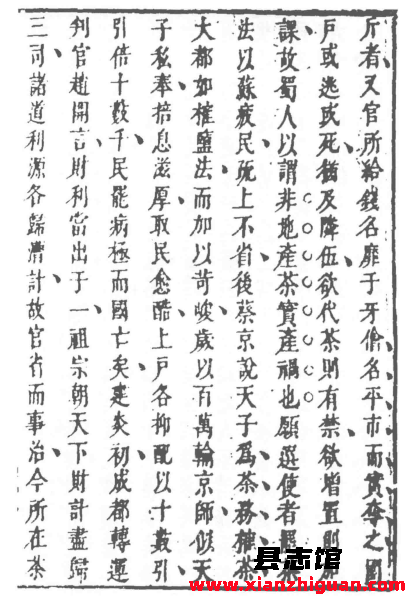 斤者又官所給錢名靡于牙儈名平市而實奪之園
戶或逃或死猶及降伍欲伐茶則有禁欲增置則加
課故蜀人以謂非地產茶實產禍也願選使者
法以蘇疲民疏上不省後蔡京說天子爲茶務榷茶
大都如榷鹽法而加以苛峻歲以百萬輸京師似天
子私奉掊息滋厚取民愈酷上戶各抑配以十數引
引倍十數千民罷病極而國亡矣建炎初成都轉運
判官趙開言財利當出于一祖宗朝天下財計盡歸
三司諸道利源各歸漕計故官省而事治今所在茶
县志馆
www.xianzhiguan.com